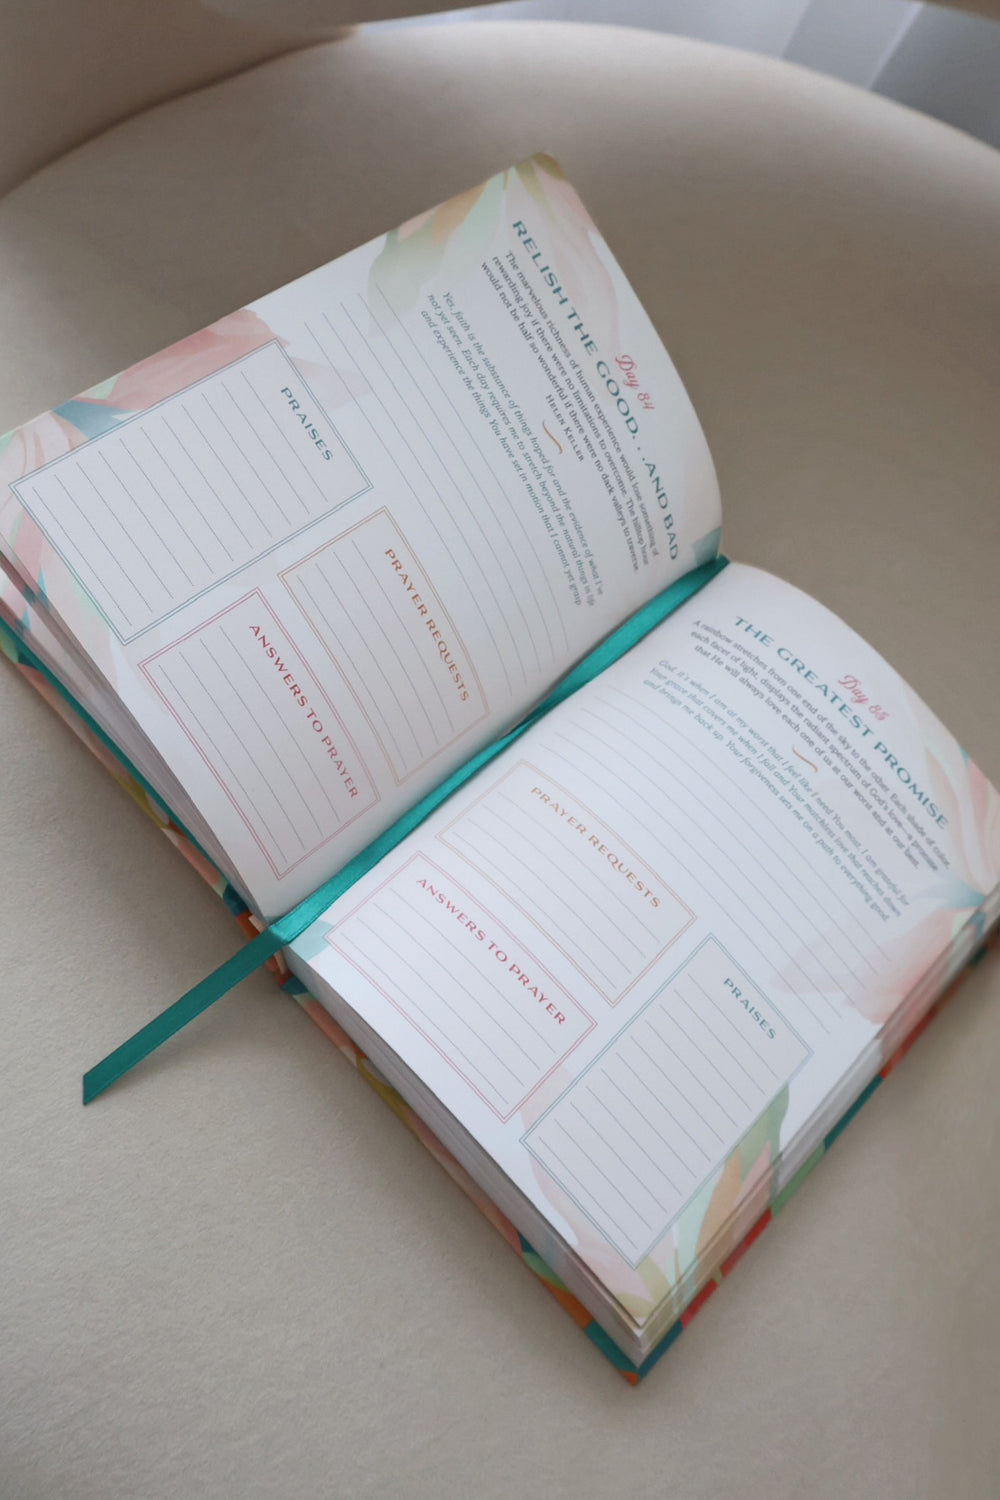 Day 84
RELISH THE GOOD. . .AND BAD
The marvelous richness of human experience would lose something of
rewarding joy if there were no limitations to overcome. The hilltop hour
would not be half so wonderful if there were no dark valleys to traverse.
HELEN KELLER
Yes, faith is the substance of things hoped for and the evidence of what I've
not yet seen. Each day requires me to stretch beyond the natural things in life
and experience the things You have set in motion that I cannot yet grasp
PRAYER REQUESTS
PRAISES
ANSWERS TO PRAYER
Day 85
THE GREATEST PROMISE
A rainbow stretches from one end of the sky to the other. Each shade of color,
each facet of light, displays the radiant spectrum of God's love—a promise
that He will always love each one of us at our worst and at our best.
God, it's when I am at my worst that I feel like I need You most. I am grateful for
Your grace that covers me when I fall and Your matchless love that reaches down
and brings me back up. Your forgiveness sets me on a path to everything good.
PRAYER REQUESTS
ANSWERS TO PRAYER
PRAISES